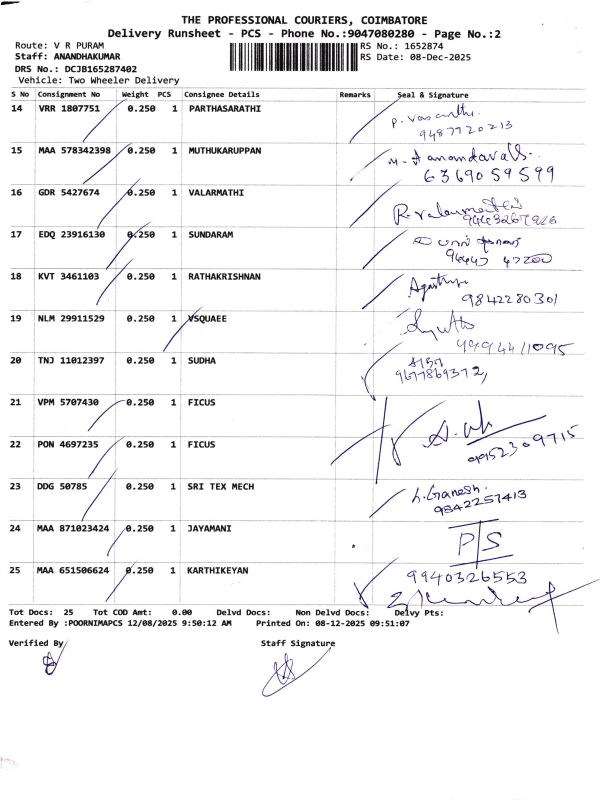 THE PROFESSIONAL COURIERS, COIMBATORE
Delivery Runsheet - PCS - Phone No.:9047080280 - Page No.:2
Route: V R PURAM
RS No.: 1652874
Staff: ANANDHAKUMAR
RS Date: 08-Dec-2025
DRS No.: DCJB165287402
Vehicle: Two Wheeler Delivery
S No Consignment No Weight PCS Consignee Details Remarks Seal & Signature
14 VRR 1807751 0.250 1 PARTHASARATHI P. Vasanthi
9487720213
15 MAA 578342398 0.250 1 MUTHUKARUPPAN M. Anandavalli
6369059599
16 GDR 5427674 0.250 1 VALARMATHI
17 EDQ 23916130 0.250 1 SUNDARAM
18 KVT 3461103 0.250 1 RATHAKRISHNAN
9842280301
19 NLM 29911529 0.250 1 VSQUAEE
20 TNJ 11012397 0.250 1 SUDHA சுதா
9677869372,
21 VPM 5707430 0.250 1 FICUS
22 PON 4697235 0.250 1 FICUS
23 DDG 50785 0.250 1 SRI TEX MECH L. Ganesh.
9842257413
24 MAA 871023424 0.250 1 JAYAMANI P/S
25 MAA 651506624 0.250 1 KARTHIKEYAN 9940326553
Tot Docs: 25 Tot COD Amt: 0.00 Delvd Docs: Non Delvd Docs: Delvy Pts:
Entered By :POORNIMAPCS 12/08/2025 9:50:12 AM Printed On: 08-12-2025 09:51:07
Verified By Staff Signature